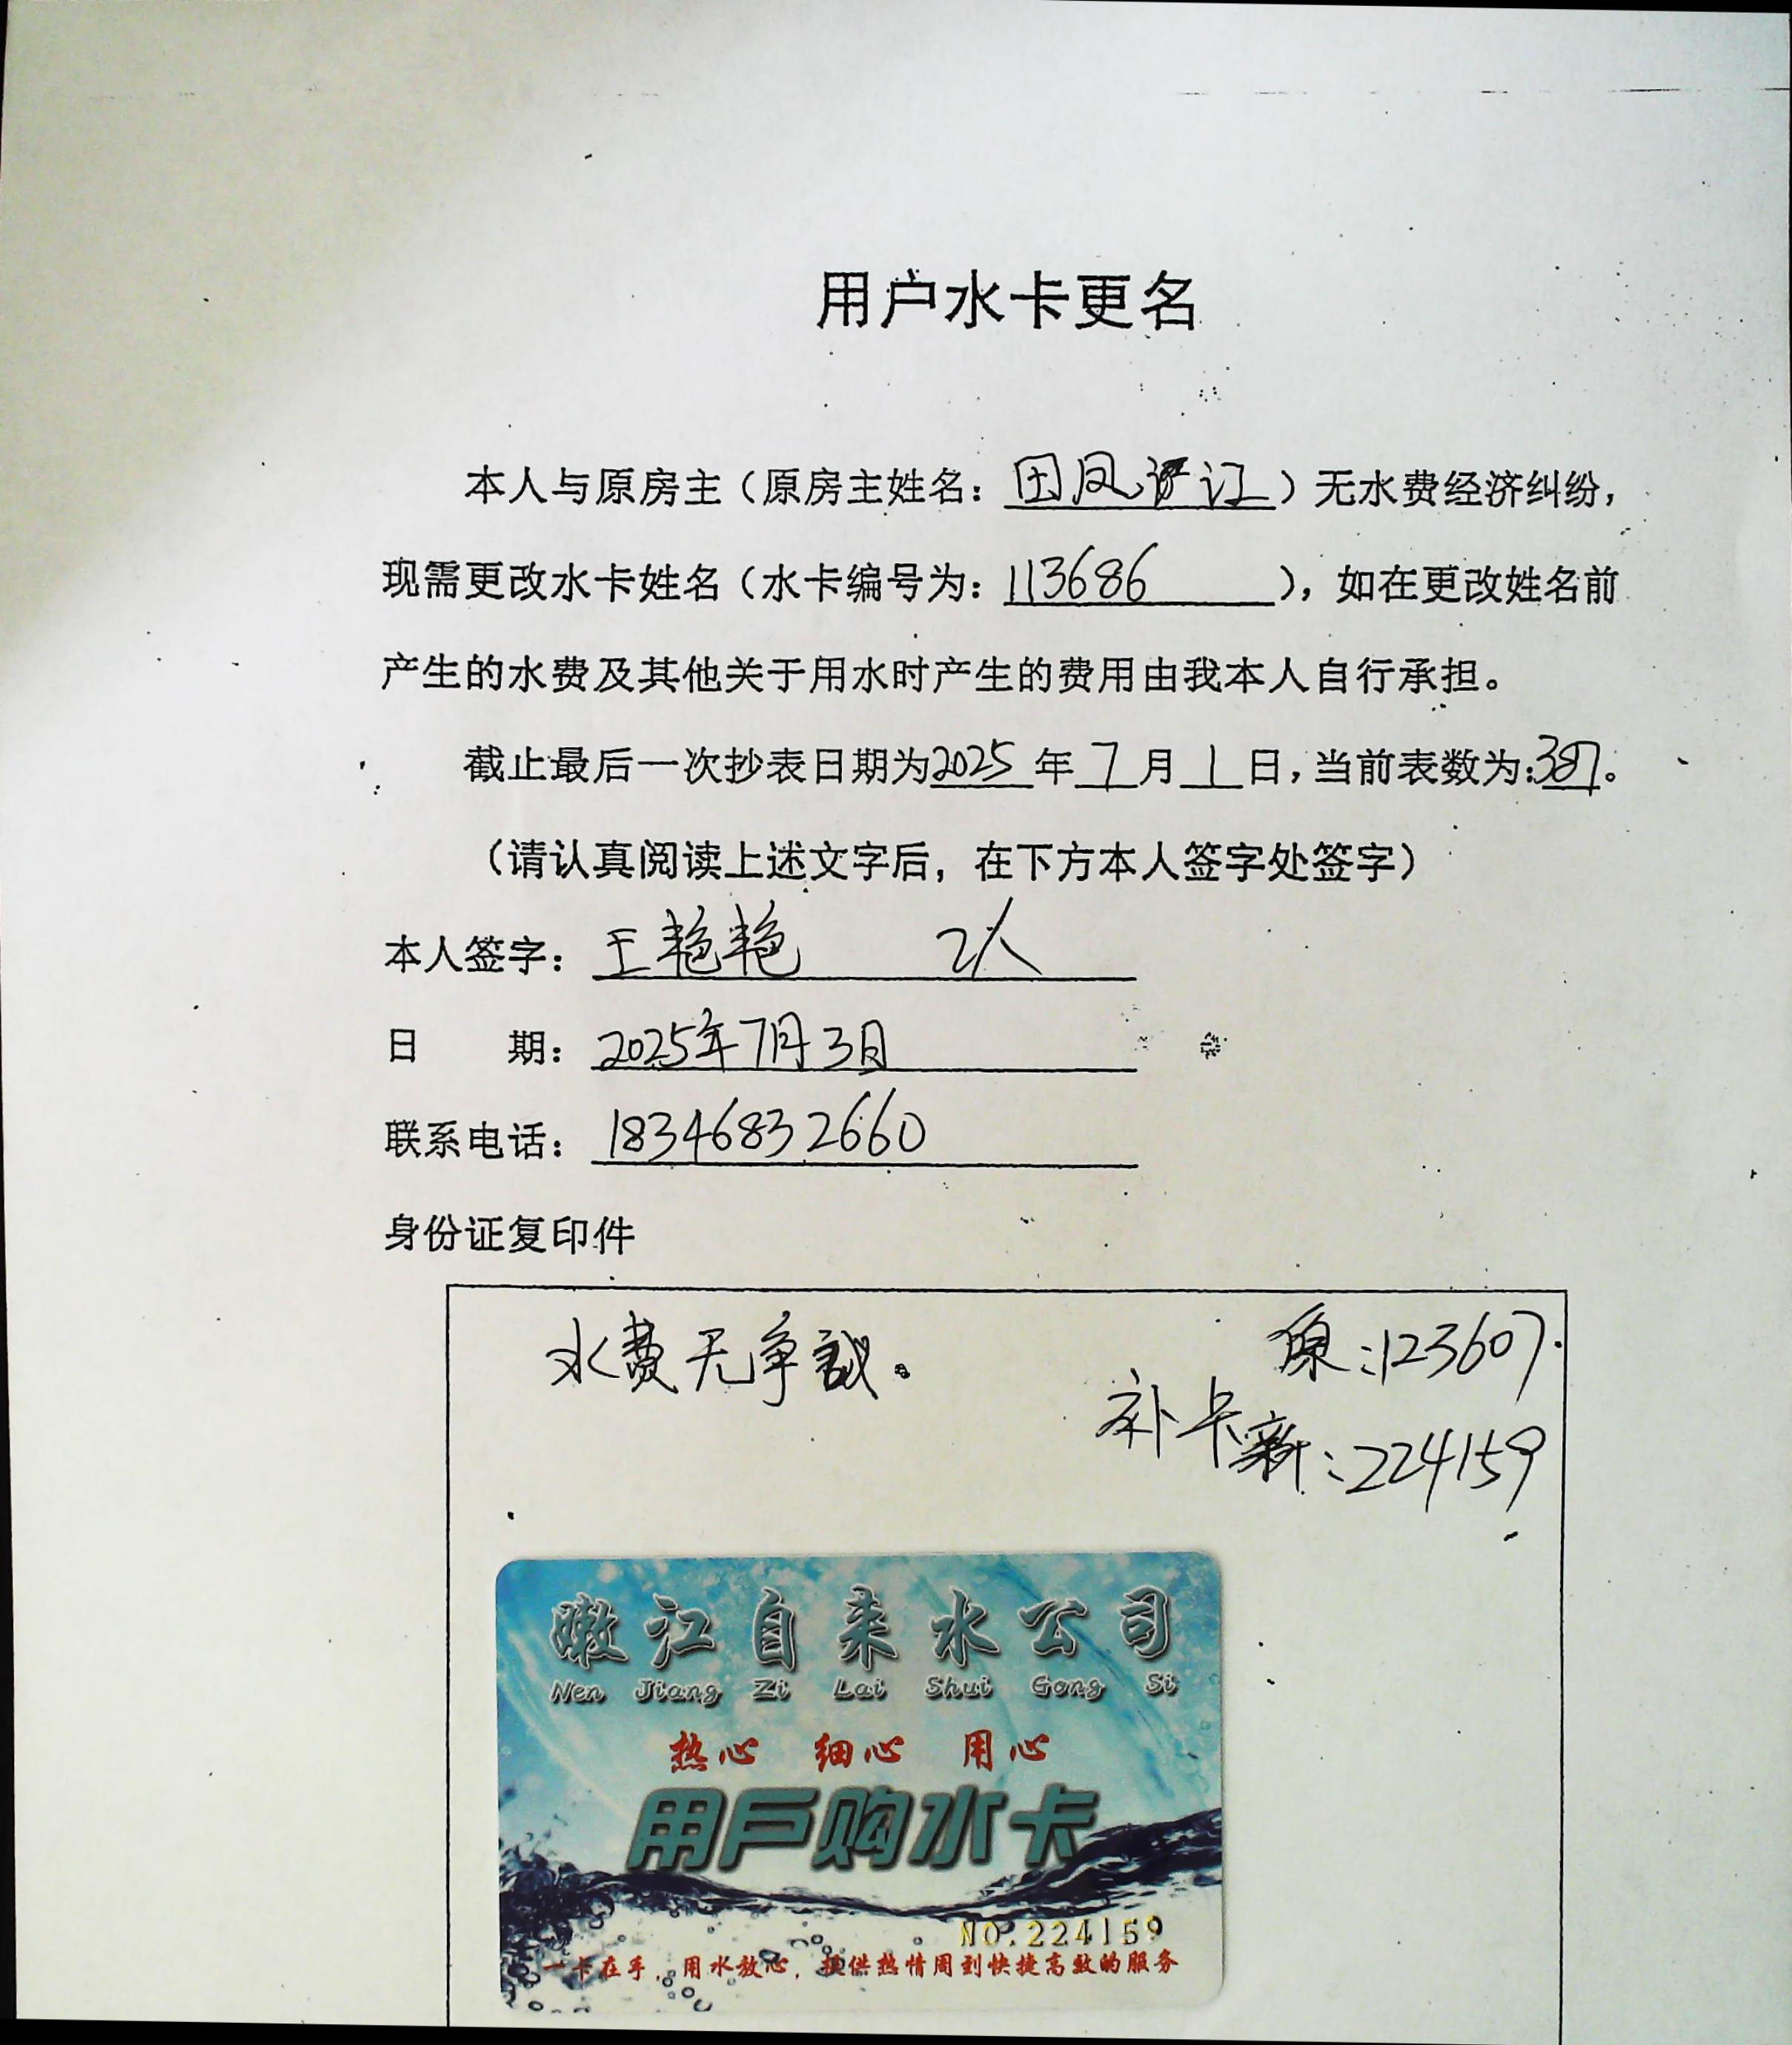 用户水卡更名
本人与原房主（原房主姓名：田凤江）无水费经济纠纷，
现需更改水卡姓名（水卡编号为：113686），如在更改姓名前
产生的水费及其他关于用水时产生的费用由我本人自行承担。
截止最后一次抄表日期为2025年7月1日，当前表数为：387。
（请认真阅读上述文字后，在下方本人签字处签字）
本人签字：王艳艳 2人
日 期：2025年7月3日
联系电话：18346832660
身份证复印件
水费无争议。
原：123607.
补卡新：224159
嫩江自来水公司
Nen Jiang Zi Lai Shui Gong Si
热心 细心 用心
用户购水卡
NO.224159
一卡在手，用水放心，提供热情周到快捷高效的服务